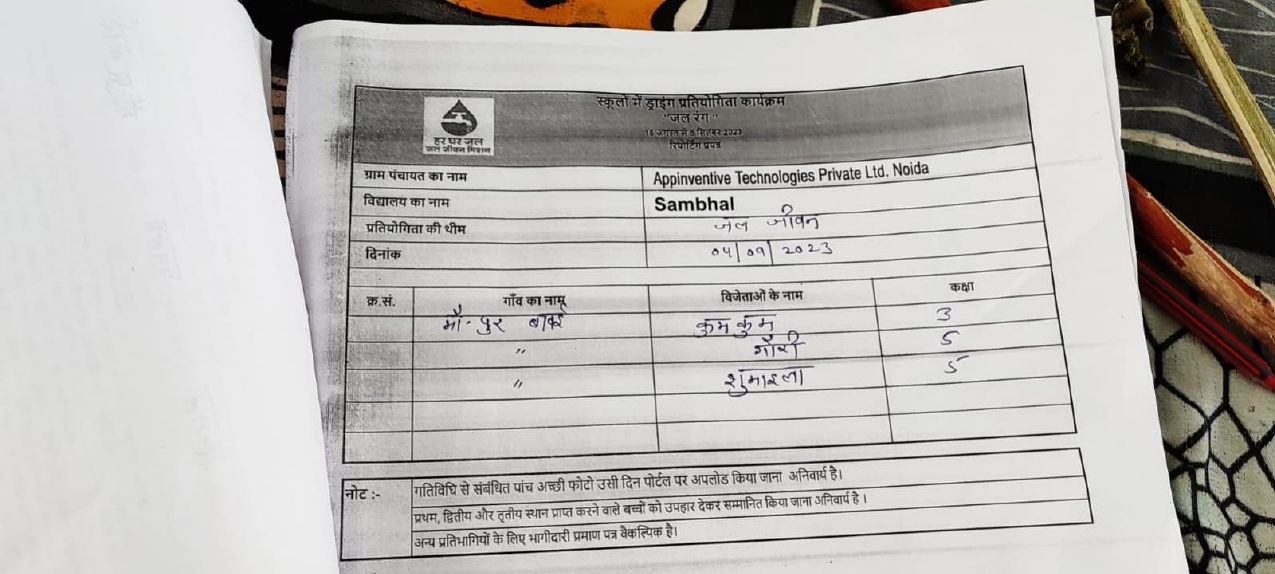 स्कूलों में ड्राइंग प्रतियोगिता कार्यक्रम
"जल रंग"
16 अगस्त से 8 सितंबर 2023
रिपोर्टिंग प्रपत्र
हर घर जल
जल जीवन मिशन
ग्राम पंचायत का नाम Appinventive Technologies Private Ltd. Noida
विद्यालय का नाम Sambhal
प्रतियोगिता की थीम जल जीवन
दिनांक 04/09/2023
क्र.सं. गाँव का नाम विजेताओं के नाम कक्षा
पुर कुम कुम 3
" गौरी 5
" शुमाइला 5
नोट :- गतिविधि से संबंधित पांच अच्छी फोटो उसी दिन पोर्टल पर अपलोड किया जाना अनिवार्य है।
प्रथम, द्वितीय और तृतीय स्थान प्राप्त करने वाले बच्चों को उपहार देकर सम्मानित किया जाना अनिवार्य है।
अन्य प्रतिभागियों के लिए भागीदारी प्रमाण पत्र वैकल्पिक है।